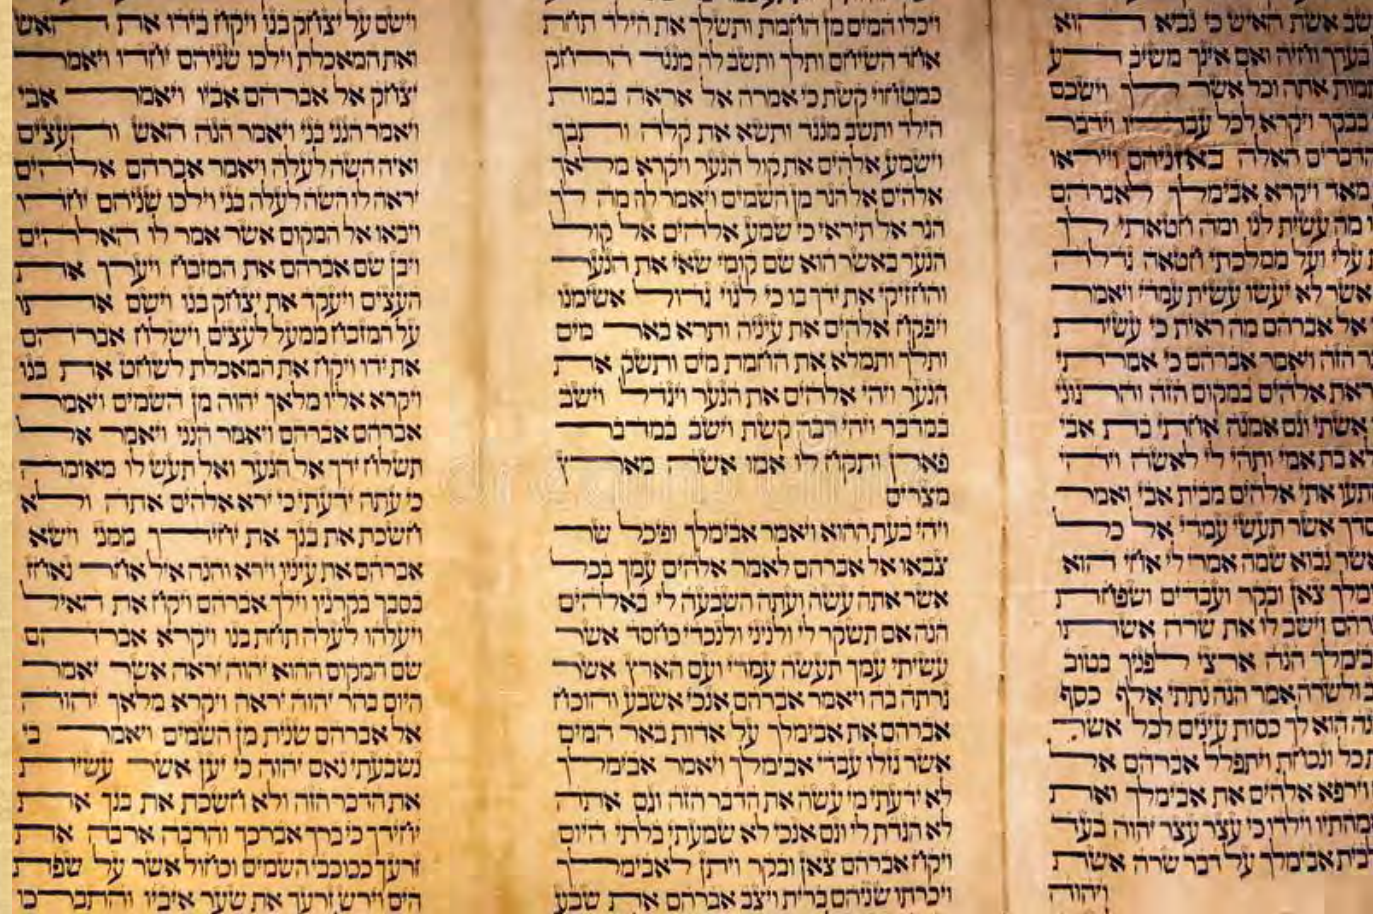 אשת האיש כי נביא הוא
בעדך וחיה ואם אינך משיב דע
תמות אתה וכל אשר לך וישכם
בבקר ויקרא לכל עבדיו וידבר
הדברים האלה באזניהם וייראו
מאד ויקרא אבימלך לאברהם
מה עשית לנו ומה חטאתי לך
עלי ועל ממלכתי חטאה גדלה
אשר לא יעשו עשית עמדי ויאמר
אל אברהם מה ראית כי עשית
הזה ויאמר אברהם כי אמרתי
אלהים במקום הזה והרגוני
אשתי וגם אמנה אחתי בת אבי
לא בת אמי ותהי לי לאשה ויהי
אתי אלהים מבית אבי ואמר
אשר תעשי עמדי אל כל
אשר נבוא שמה אמרי לי אחי הוא
צאן ובקר ועבדים ושפחת
וישב לו את שרה אשתו
הנה ארצי לפניך בטוב
ולשרה אמר הנה נתתי אלף כסף
הוא לך כסות עינים לכל אשר
ונכחת ויתפלל אברהם אל
וירפא אלהים את אבימלך ואת
וילדו כי עצר עצר יהוה בעד
לבית אבימלך על דבר שרה אשת
ויהוה
ויכלו המים מן החמת ותשלך את הילד תחת
אחד השיחם ותלך ותשב לה מנגד הרחק
כמטחוי קשת כי אמרה אל אראה במות
הילד ותשב מנגד ותשא את קלה ותבך
וישמע אלהים את קול הנער ויקרא מלאך
אלהים אל הגר מן השמים ויאמר לה מה לך
הגר אל תיראי כי שמע אלהים אל קול
הנער באשר הוא שם קומי שאי את הנער
והחזיקי את ידך בו כי לגוי גדול אשימנו
ויפקח אלהים את עיניה ותרא באר מים
ותלך ותמלא את החמת מים ותשק את
הנער ויהי אלהים את הנער ויגדל וישב
במדבר ויהי רבה קשת וישב במדבר
פארן ותקח לו אמו אשה מארץ
מצרים
ויהי בעת ההוא ויאמר אבימלך ופיכל שר
צבאו אל אברהם לאמר אלהים עמך בכל
אשר אתה עשה ועתה השבעה לי באלהים
הנה אם תשקר לי ולניני ולנכדי כחסד אשר
עשיתי עמך תעשה עמדי ועם הארץ אשר
גרתה בה ויאמר אברהם אנכי אשבע והוכח
אברהם את אבימלך על אדות באר המים
אשר גזלו עבדי אבימלך ויאמר אבימלך
לא ידעתי מי עשה את הדבר הזה וגם אתה
לא הגדת לי וגם אנכי לא שמעתי בלתי היום
ויקח אברהם צאן ובקר ויתן לאבימלך
ויכרתו שניהם ברית ויצב אברהם את שבע
וישם על יצחק בנו ויקח בידו את האש
ואת המאכלת וילכו שניהם יחדו ויאמר
יצחק אל אברהם אביו ויאמר אבי
ויאמר הנני בני ויאמר הנה האש והעצים
ואיה השה לעלה ויאמר אברהם אלהים
יראה לו השה לעלה בני וילכו שניהם יחדו
ויבאו אל המקום אשר אמר לו האלהים
ויבן שם אברהם את המזבח ויערך את
העצים ויעקד את יצחק בנו וישם אתו
על המזבח ממעל לעצים וישלח אברהם
את ידו ויקח את המאכלת לשחט את בנו
ויקרא אליו מלאך יהוה מן השמים ויאמר
אברהם אברהם ויאמר הנני ויאמר אל
תשלח ידך אל הנער ואל תעש לו מאומה
כי עתה ידעתי כי ירא אלהים אתה ולא
חשכת את בנך את יחידך ממני וישא
אברהם את עיניו וירא והנה איל אחר נאחז
בסבך בקרניו וילך אברהם ויקח את האיל
ויעלהו לעלה תחת בנו ויקרא אברהם
שם המקום ההוא יהוה יראה אשר יאמר
היום בהר יהוה יראה ויקרא מלאך יהוה
אל אברהם שנית מן השמים ויאמר בי
נשבעתי נאם יהוה כי יען אשר עשית
את הדבר הזה ולא חשכת את בנך את
יחידך כי ברך אברכך והרבה ארבה את
זרעך ככוכבי השמים וכחול אשר על שפת
הים וירש זרעך את שער איביו והתברכו